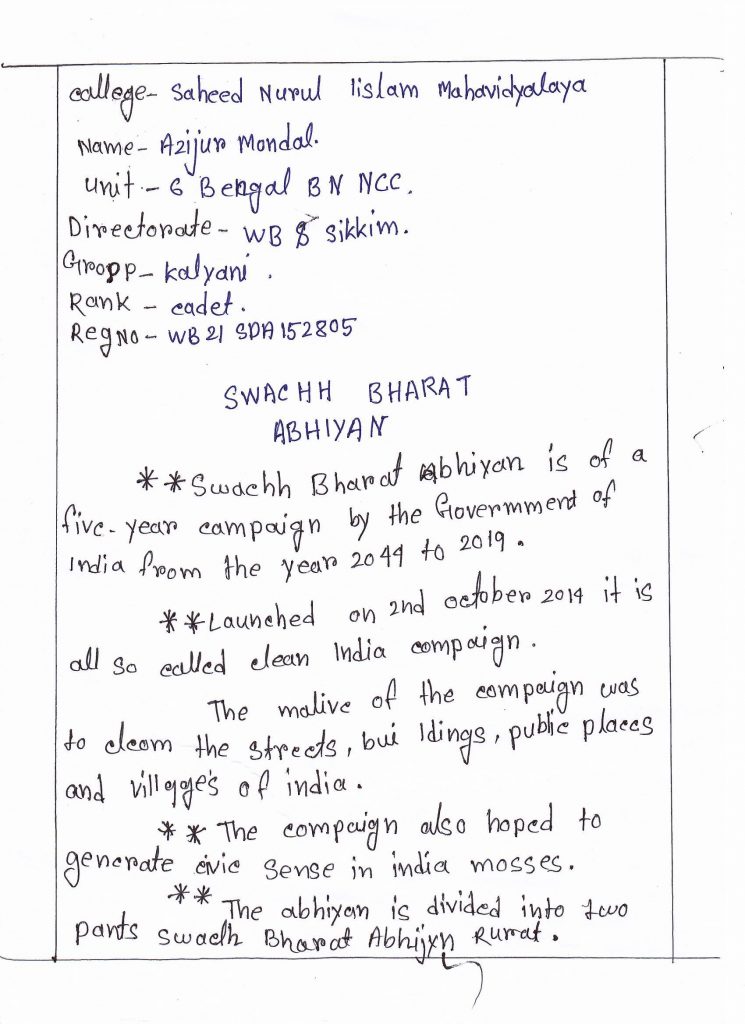 college- Saheed Nurul Iislam Mahavidyalaya
Name- Azijur Mondal.
Unit - 6 Bengal BN NCC.
Directorate - WB & Sikkim.
Gropp- kalyani .
Rank - cadet .
Reg No - WB 21 SDA 152805
SWACHH BHARAT
ABHIYAN
**Swachh Bharat Abhiyan is of a
five-year campaign by the Governmend of
India from the year 2044 to 2019 .
**Launched on 2nd october 2014 it is
all so called clean India compaign .
The malive of the compaign was
to cleom the streets, bui ldings, public places
and villages of india .
** The compaign also hoped to
generate civic sense in india mosses.
** The abhiyan is divided into two
pants swaclh Bharat Abhijyn Rurat .